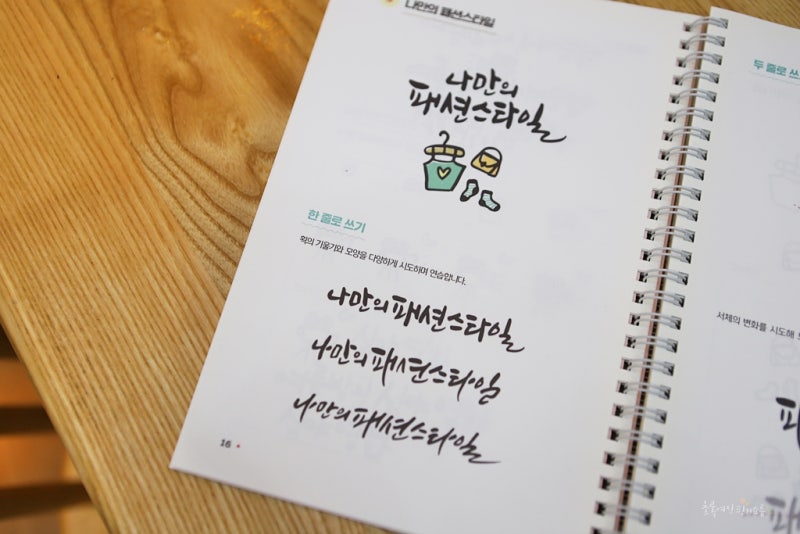 나만의 패션스타일
나만의
패션스타일
한 줄로 쓰기
획의 기울기와 모양을 다양하게 시도하며 연습합니다.
나만의패션스타일
나만의패션스타일
나만의패션스타일
16
두 줄로 쓰
서체의 변화를 시도해